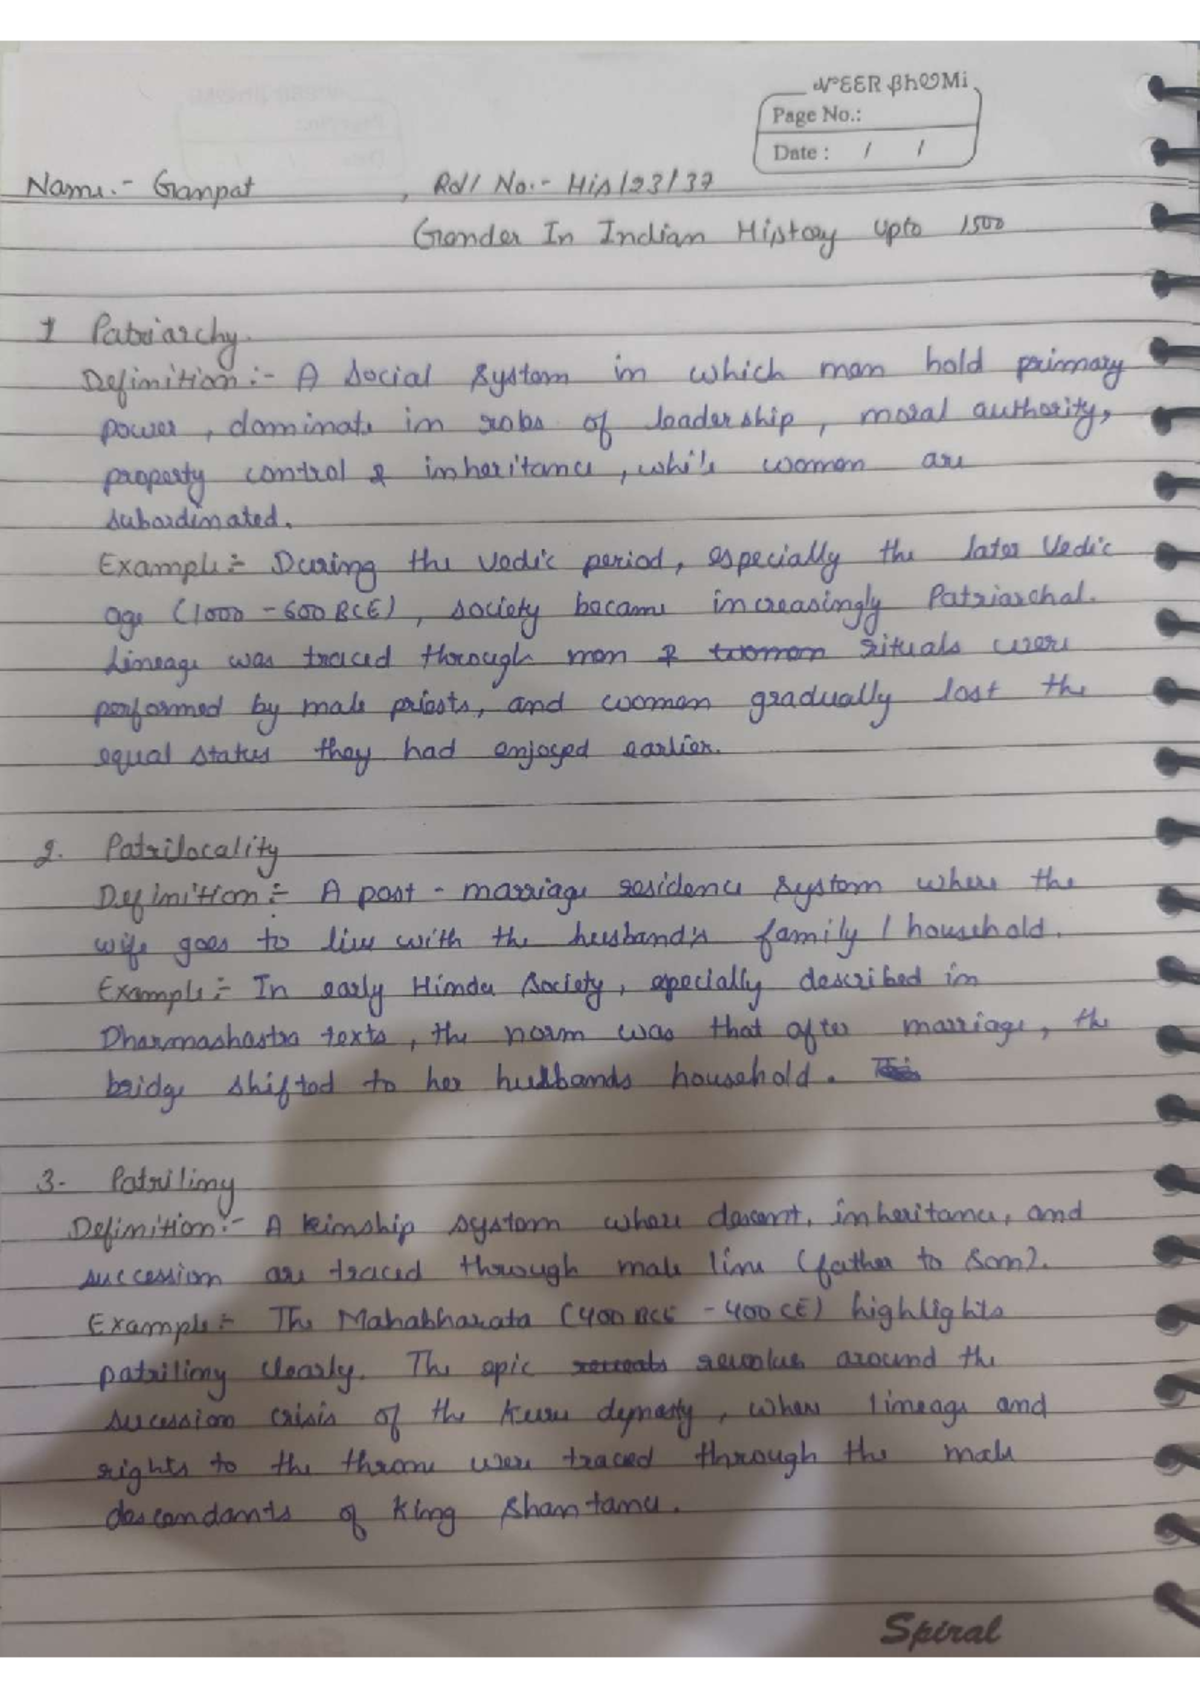 VEER BhOOMi
Page No.:
Date : / /
Name.- Ganpat , Roll No.- His/23/37
Gender In Indian History upto 1500
1 Patriarchy.
Definition:- A Social System in which men hold primary
power, dominate in roles of leadership, moral authority,
property control & inheritance, while women are
subordinated.
Example:- During the Vedic period, especially the later Vedic
age (1000 - 600 BCE), society became increasingly Patriarchal.
Lineage was traced through men & women rituals were
performed by male priests, and women gradually lost the
equal status they had enjoyed earlier.
2. Patrilocality
Definition:- A post - marriage residence system where the
wife goes to live with the husband's family / household.
Example:- In early Hindu Society, especially described in
Dharmashastra texts, the norm was that after marriage, the
bridge shifted to her husbands household.
3- Patriliny
Definition:- A kinship system where descent, inheritance, and
succession are traced through male line (father to son).
Example:- The Mahabharata (400 BCE - 400 CE) highlights
patriliny clearly. The epic reveals revolves around the
sucession crisis of the Kuru dynasty, where lineage and
rights to the throne were traced through the male
descendants of King Shantanu.
Spiral